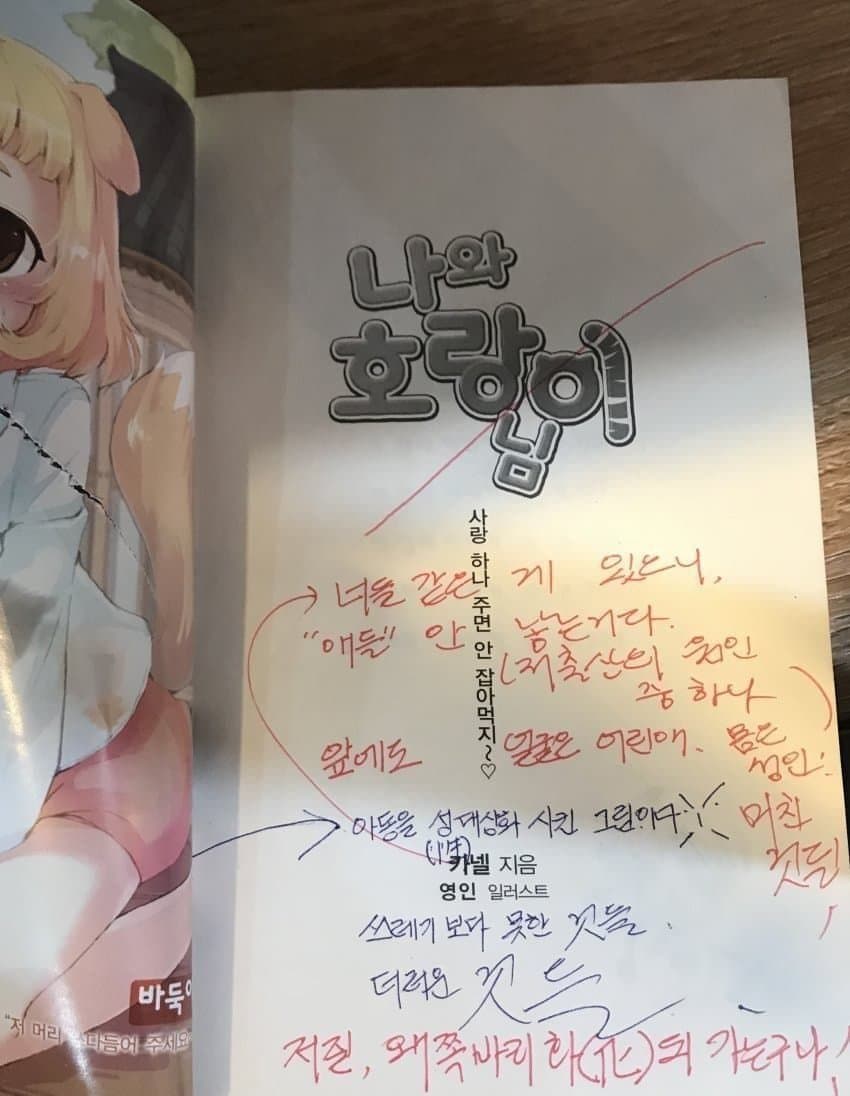 나와
호랑이
님
사랑 하나 주면 안 잡아먹지~♡
너들 같은 게 있으니,
"애들" 안 낳는거다.
(저출산의 원인
중 하나)
앞에도 얼굴은 어린애, 몸은
성인!
미친
것들!
아동을 성대상화 시킨 그림이다
(性)
카넬 지음
영인 일러스트
쓰레기 보다 못한 것들.
더러운 것들
저질, 왜쪽바리 화(化)되 가는구나!
바둑이
"저 머리 다듬어 주세요